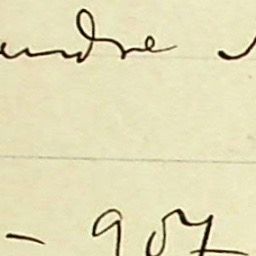 undre
- 907